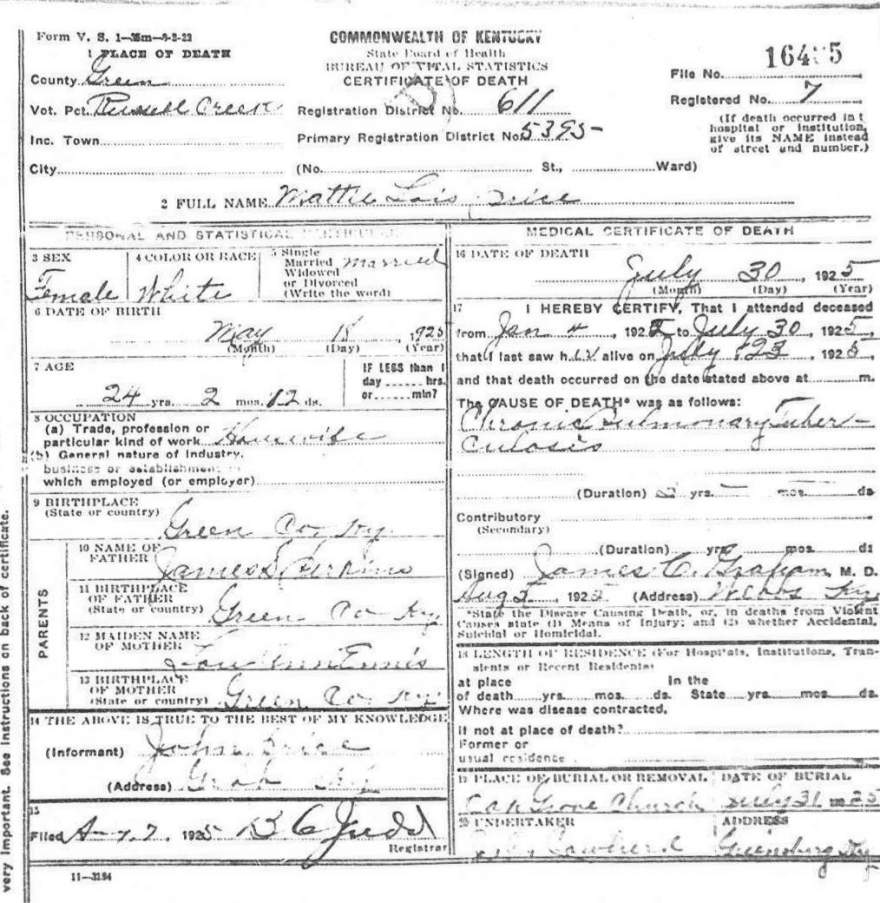 Form V. S. 1—35m—9-2-22
COMMONWEALTH OF KENTUCKY
State Board of Health
BUREAU OF VITAL STATISTICS
CERTIFICATE OF DEATH
1 PLACE OF DEATH
County Green
Vot. Pct. Russell Creek
Inc. Town
City
Registration District No. 611
Primary Registration District No. 5395-
(No. St., Ward)
File No. 164 5
Registered No. 7
(If death occurred in a
hospital or institution,
give its NAME instead
of street and number.)
2 FULL NAME Mattie Lois Price
PERSONAL AND STATISTICAL PARTICULARS
3 SEX
Female
4 COLOR OR RACE
White
5 Single
Married
Widowed
or Divorced
(Write the word)
Married
6 DATE OF BIRTH
May 18, 1925
(Month) (Day) (Year)
7 AGE
24 yrs. 2 mos. 12 ds.
IF LESS than 1
day hrs.
or min?
8 OCCUPATION
(a) Trade, profession or
particular kind of work Housewife
(b) General nature of industry,
business or establishment in
which employed (or employer)
9 BIRTHPLACE
(State or country)
Green Co. Ky.
PARENTS
10 NAME OF
FATHER
James Perkins
11 BIRTHPLACE
OF FATHER
(State or country) Green Co Ky
12 MAIDEN NAME
OF MOTHER
Lou Ann Ennis
13 BIRTHPLACE
OF MOTHER
(State or country) Green Co. Ky.
14 THE ABOVE IS TRUE TO THE BEST OF MY KNOWLEDGE
(Informant) John Price
(Address) Ky
15
Filed 1925 B C Judd
Registrar
11—3194
MEDICAL CERTIFICATE OF DEATH
16 DATE OF DEATH
July 30, 1925
(Month) (Day) (Year)
17 I HEREBY CERTIFY, That I attended deceased
from Jan 4, 192 to July 30, 1925,
that I last saw her alive on July 23, 1925,
and that death occurred on the date stated above at m.
The CAUSE OF DEATH* was as follows:
Chronic Pulmonary Tuber-
culosis
(Duration) yrs. mos. ds
Contributory
(Secondary)
(Duration) yrs. mos. ds
(Signed) James C. Graham M. D.
Aug 2, 192 (Address) Webbs Ky
*State the Disease Causing Death, or, in deaths from Violent
Causes state (1) Means of Injury; and (2) whether Accidental,
Suicidal or Homicidal.
18 LENGTH OF RESIDENCE (For Hospitals, Institutions, Tran-
sients or Recent Residents)
at place In the
of death yrs. mos. ds. State yrs. mos. ds.
Where was disease contracted,
if not at place of death?
Former or
usual residence
19 PLACE OF BURIAL OR REMOVAL DATE OF BURIAL
Oak Grove Church July 31 1925
20 UNDERTAKER ADDRESS
Cowherd Greensburg Ky
very important. See instructions on back of certificate.